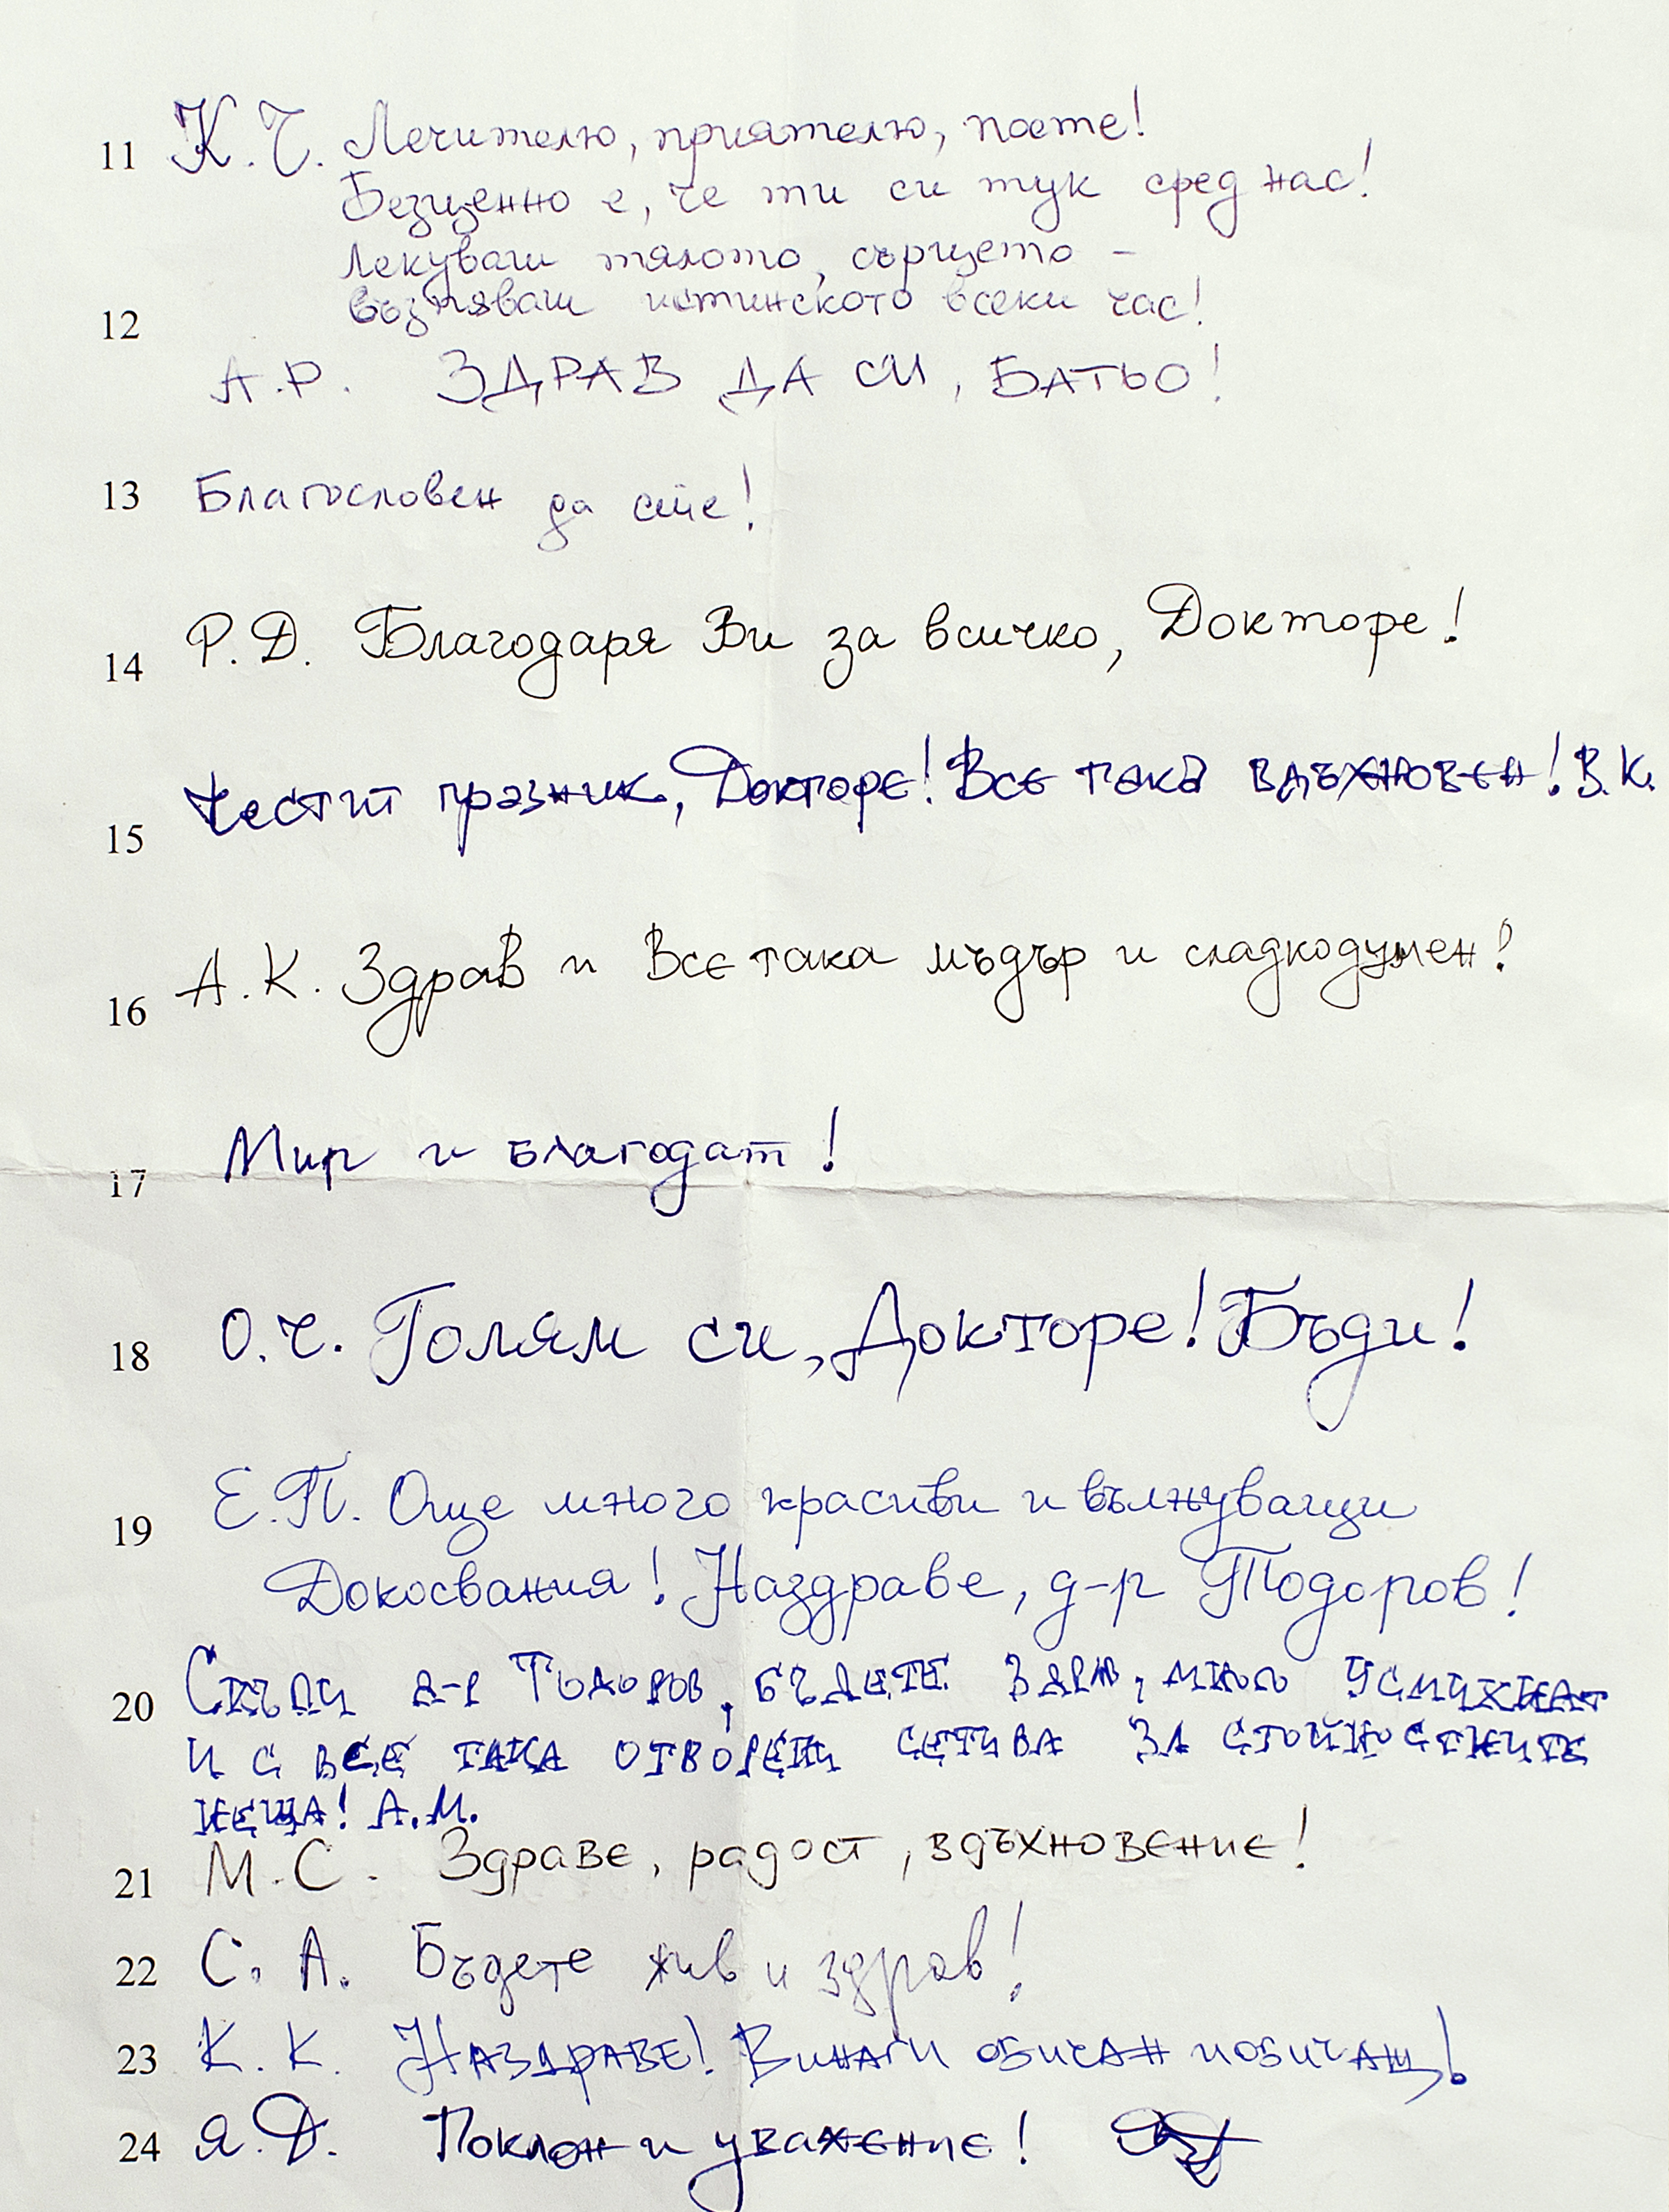 11 К.Ч. Лечителю, приятелю, поете!
Безценно е, че ти си тук сред нас!
Лекуваш тялото, сърцето –
възпяваш истинското всеки час!
12 А.Р. ЗДРАВ ДА СИ, БАТЬО!
13 Благословен да сте!
14 Р.Д. Благодаря Ви за всичко, Докторе!
15 Честит празник, Докторе! Все така вдъхновен! В.К.
16 А.К. Здрав и Все така мъдър и сладкодумен!
17 Мир и благодат!
18 О.Ч. Голям си, Докторе! Бъди!
19 Е.П. Още много красиви и вълнуващи
Докосвания! Наздраве, д-р Тодоров!
20 Скъпи д-р Тодоров, бъдете здрав, много усмихнат
и с все така отворени сетива за стойностните
неща! А.М.
21 М.С. Здраве, радост, вдъхновение!
22 С.А. Бъдете жив и здрав!
23 К.К. Наздраве! Винаги обичан и обичащ!
24 Я.Д. Поклон и уважение!